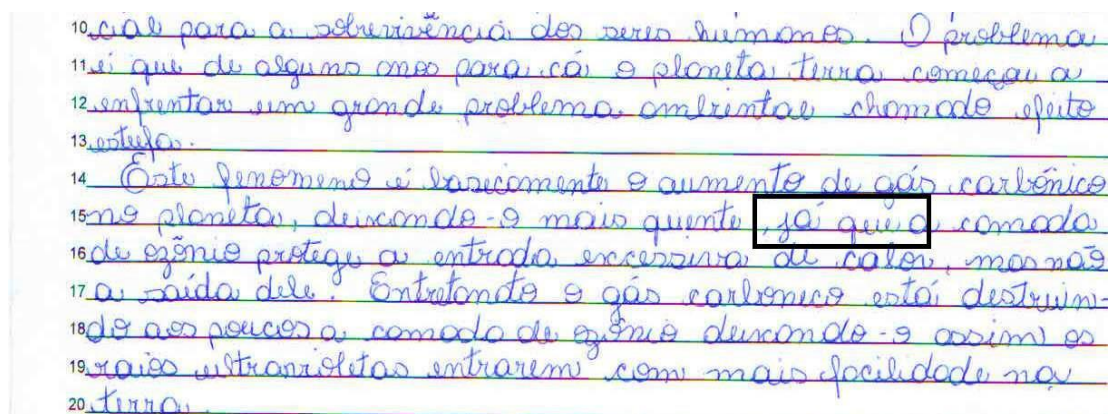 10 cial para a sobrevivência dos seres humanos. O problema
11 é que de alguns anos para cá o planeta terra começou a
12 enfrentar um grande problema ambiental chamado efeito
13 estufa.
14 Este fenomeno é basicamente o aumento de gás carbônico
15 no planeta, deixando-o mais quente, já que a camada
16 de ozônio protege a entrada excessiva de calor, mas não
17 a saída dele. Entretando o gás carbonico está destruin-
18 do aos poucos a camada de ozônio deixando-o assim os
19 raios ultravioletas entrarem com mais facilidade na
20 terra.